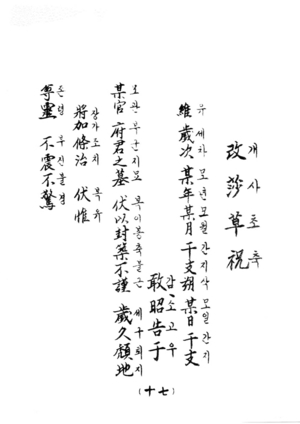 改莎草祝
개사초축
維 歲次 某年某月 干支朔 某日干支
유 세차 모년모월 간지삭 모일간지
敢昭告于
감소고우
某官 府君之墓 伏以封築不謹 歲久頹地
모관 부군지묘 복이봉축불근 세구퇴지
將加條治 伏惟
장가조치 복유
尊靈 不震不驚
존령 부진불경
(十七)